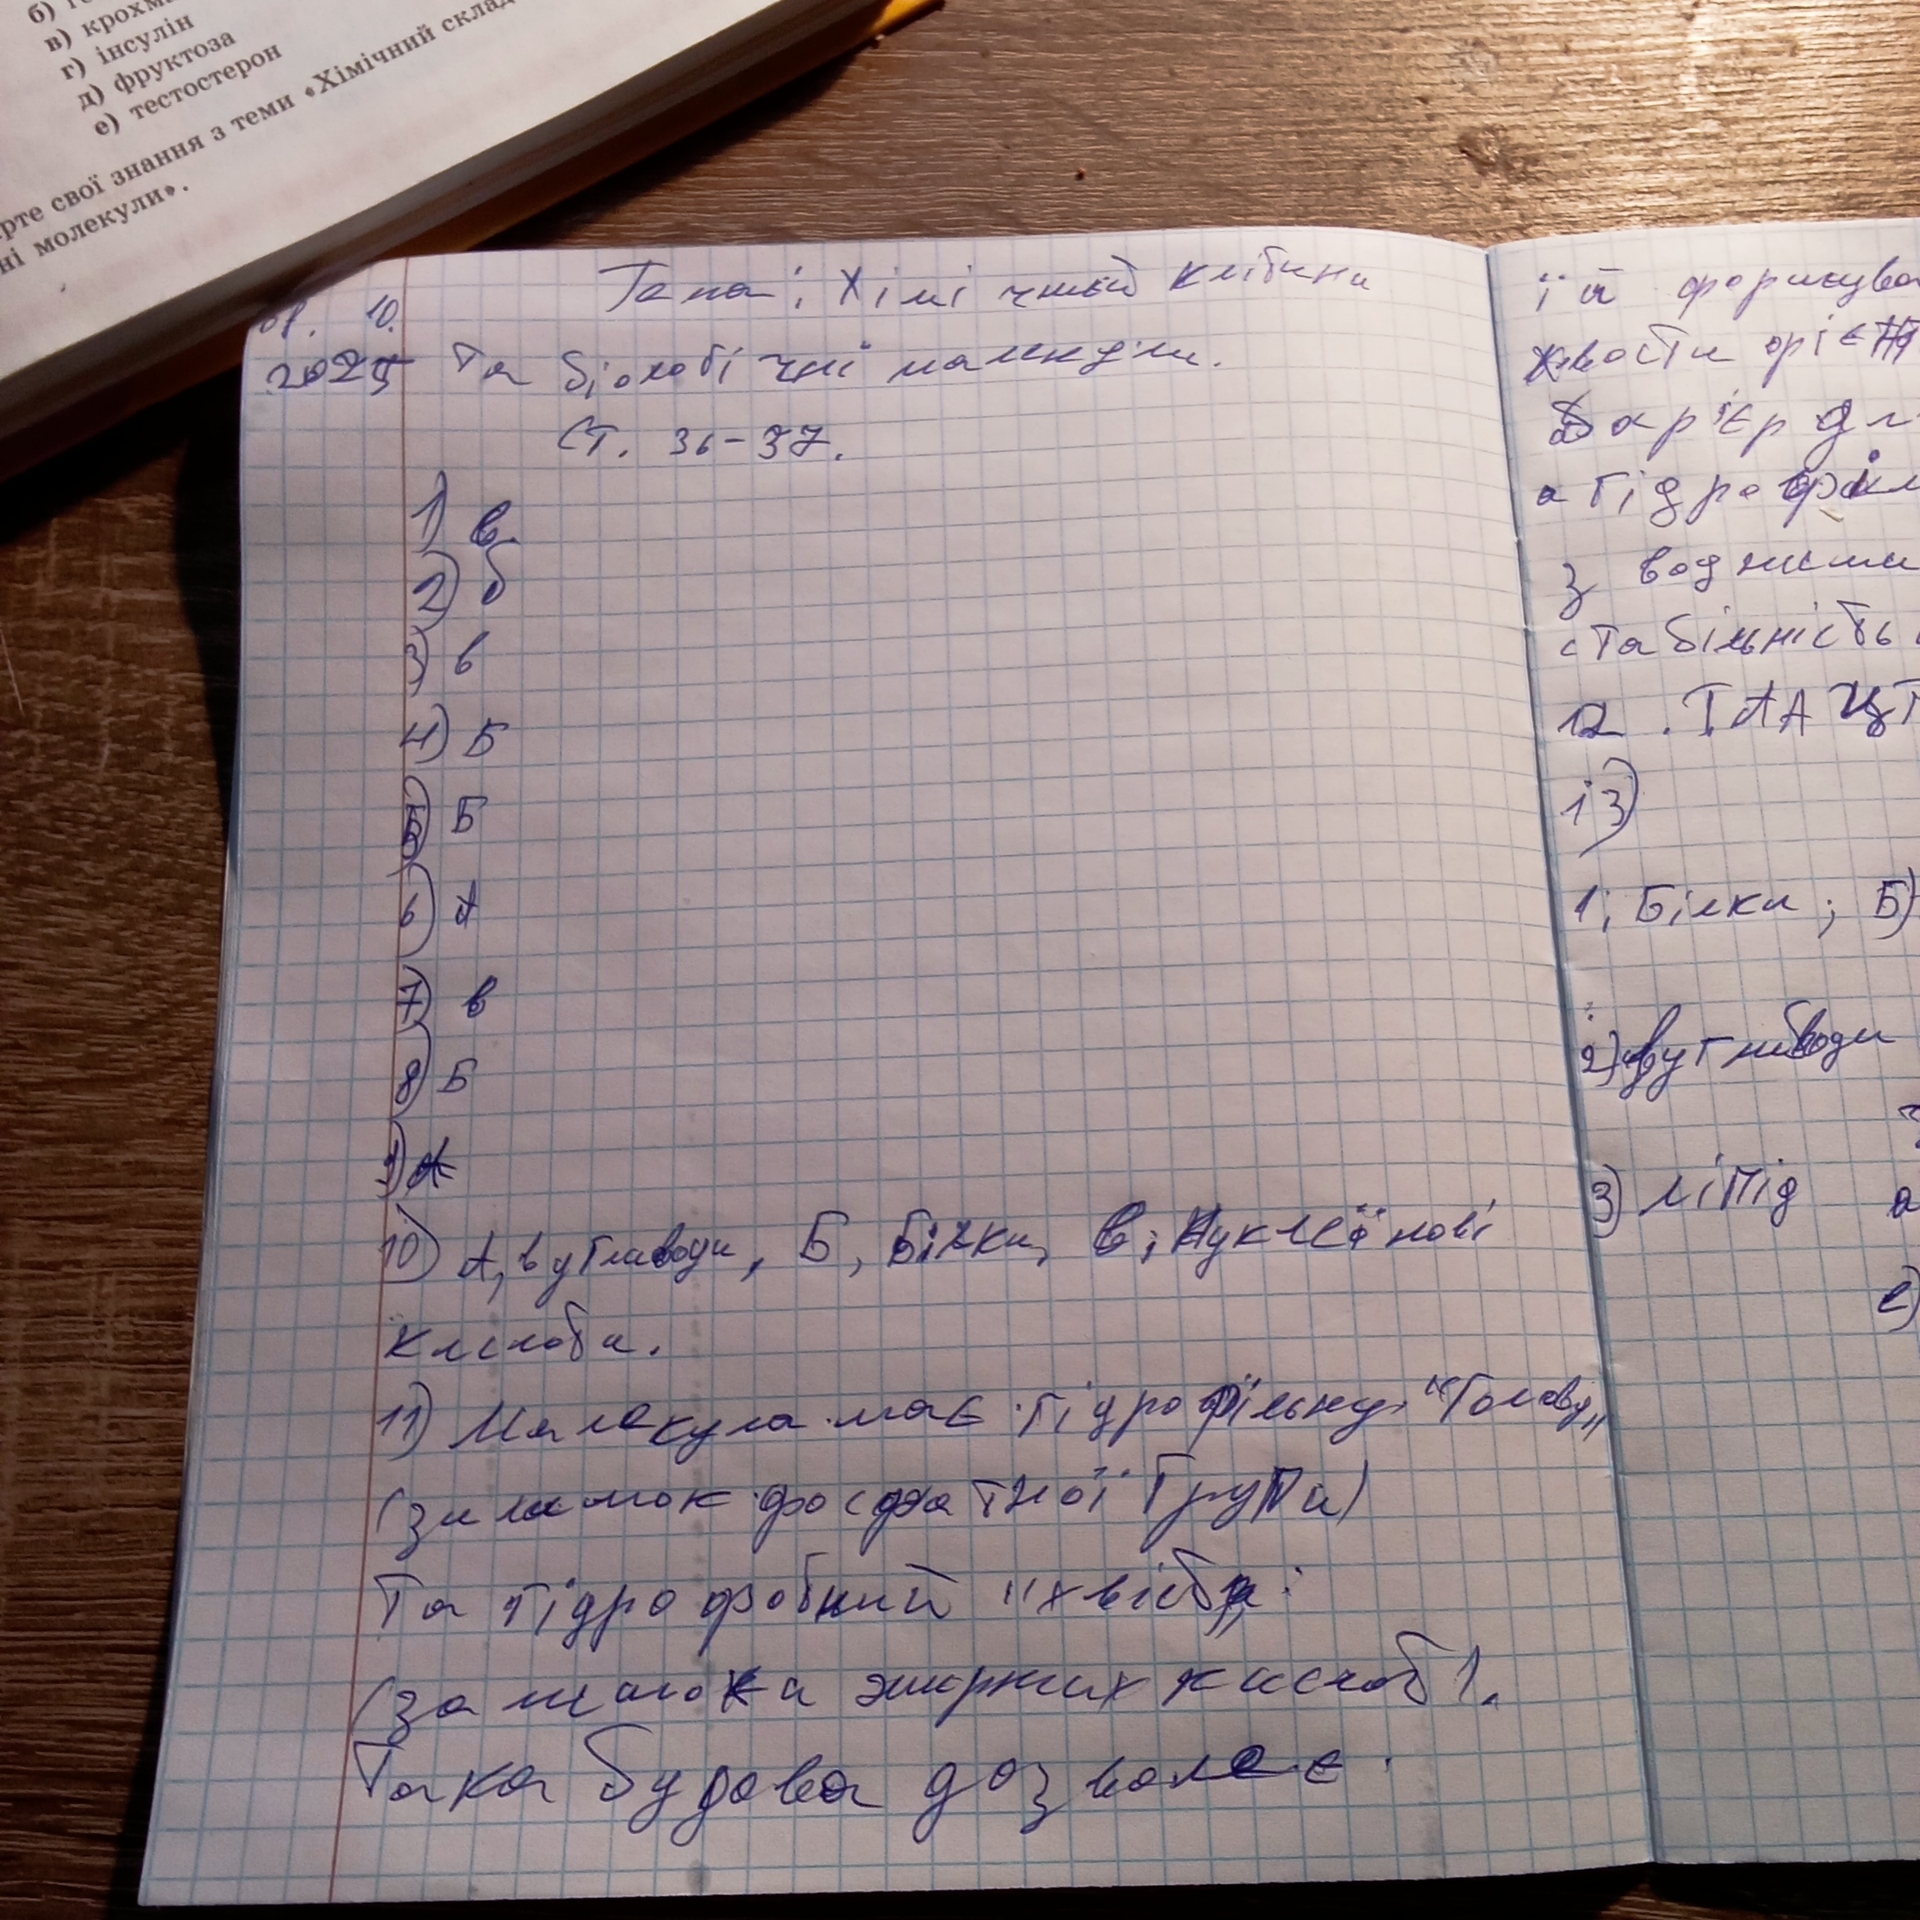 б)
в) крохм
г) інсулін
д) фруктоза
е) тестостерон
рте свої знання з теми «Хімічний склад
ні молекули».
10.
2025
Тема: Хімічний клітини
та біологічні молекули.
Ст. 36-37.
1) в.
2) б
3) в
4) Б
5) Б
6) А
7) в
8) Б
9) А
10) А, вуглеводи, Б, Білки, в; Нуклеїнові
кислоти.
11) Молекула має гідрофільну "Голову"
(залишок фосфатної групи)
Та гідрофобний "хвіст"
(залишки жирних кислот).
Така будова дозволяє
їй формува
хвости орієнт
Бар'єр дл
а гідрофіл
з водними
стабільність
12. ТААЦТ
13)
1; Білки; Б)
2) вуглеводи
3) ліпід а
е)